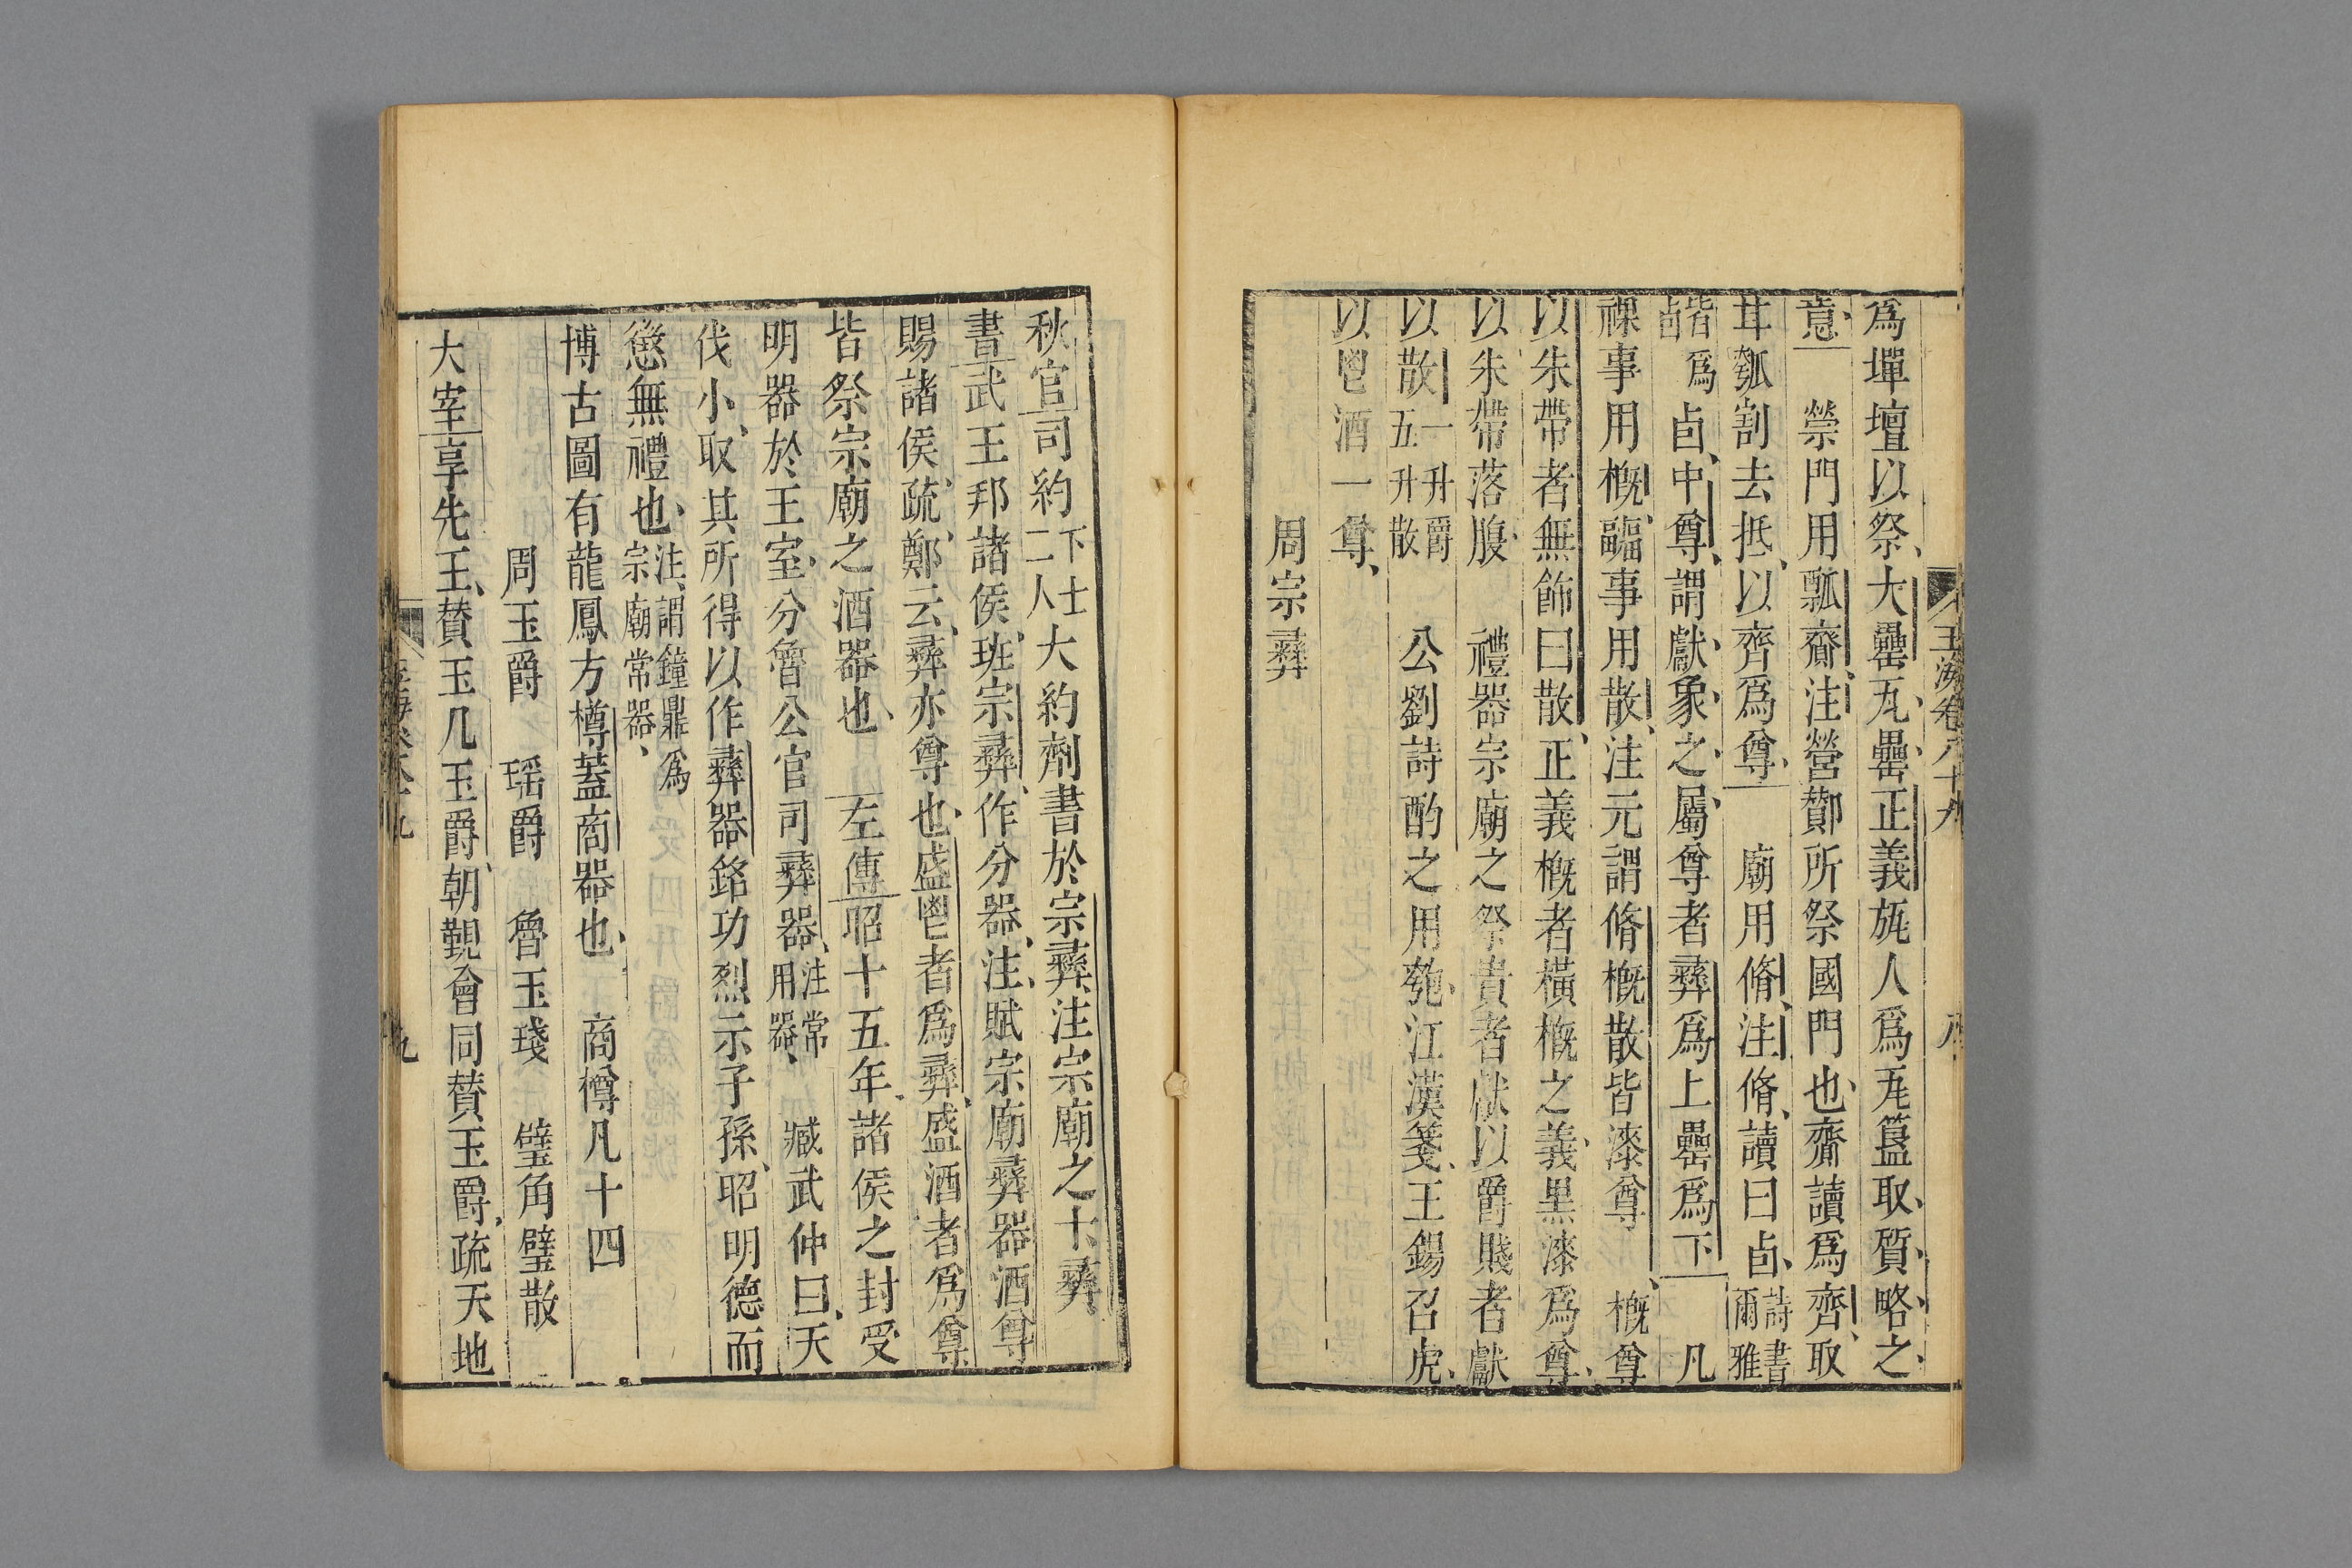 玉海卷八十九 八
爲墠壇以祭大罍瓦罍正義旊人爲瓦簋取質略之
意 禜門用瓢齎注營酇所祭國門也齎讀爲齊取
甘瓠割去抵以齊爲尊 廟用脩注脩讀曰卣詩書爾雅
皆爲卣卣中尊謂獻象之屬尊者彝爲上罍爲下 凡
祼事用概疈事用散注元謂脩概散皆漆尊 概尊
以朱帶者無飾曰散正義概者橫概之義黒漆爲尊
以朱帶落腹 禮器宗廟之祭貴者獻以爵賤者獻
以散一升爵五升散 公劉詩酌之用匏江漢箋王錫召虎
以鬯酒一尊
周宗彝
秋官司約下士二人大約劑書於宗彝注宗廟之十彝
書武王邦諸侯班宗彝作分器注賦宗廟彝器酒尊
賜諸侯疏鄭云彝亦尊也盛鬯者爲彝盛酒者爲尊
皆祭宗廟之酒器也 左傳昭十五年諸侯之封受
明器於王室分魯公官司彝器注常用器 臧武仲曰天
伐小取其所得以作彝器銘功烈示子孫昭明德而
懲無禮也注謂鐘鼎爲宗廟常器
博古圖有龍鳳方樽蓋商器也 商樽凡十四
周玉爵 瑶爵 魯玉琖 璧角璧散
大宰享先王賛玉几玉爵朝覲會同賛玉爵疏天地
九